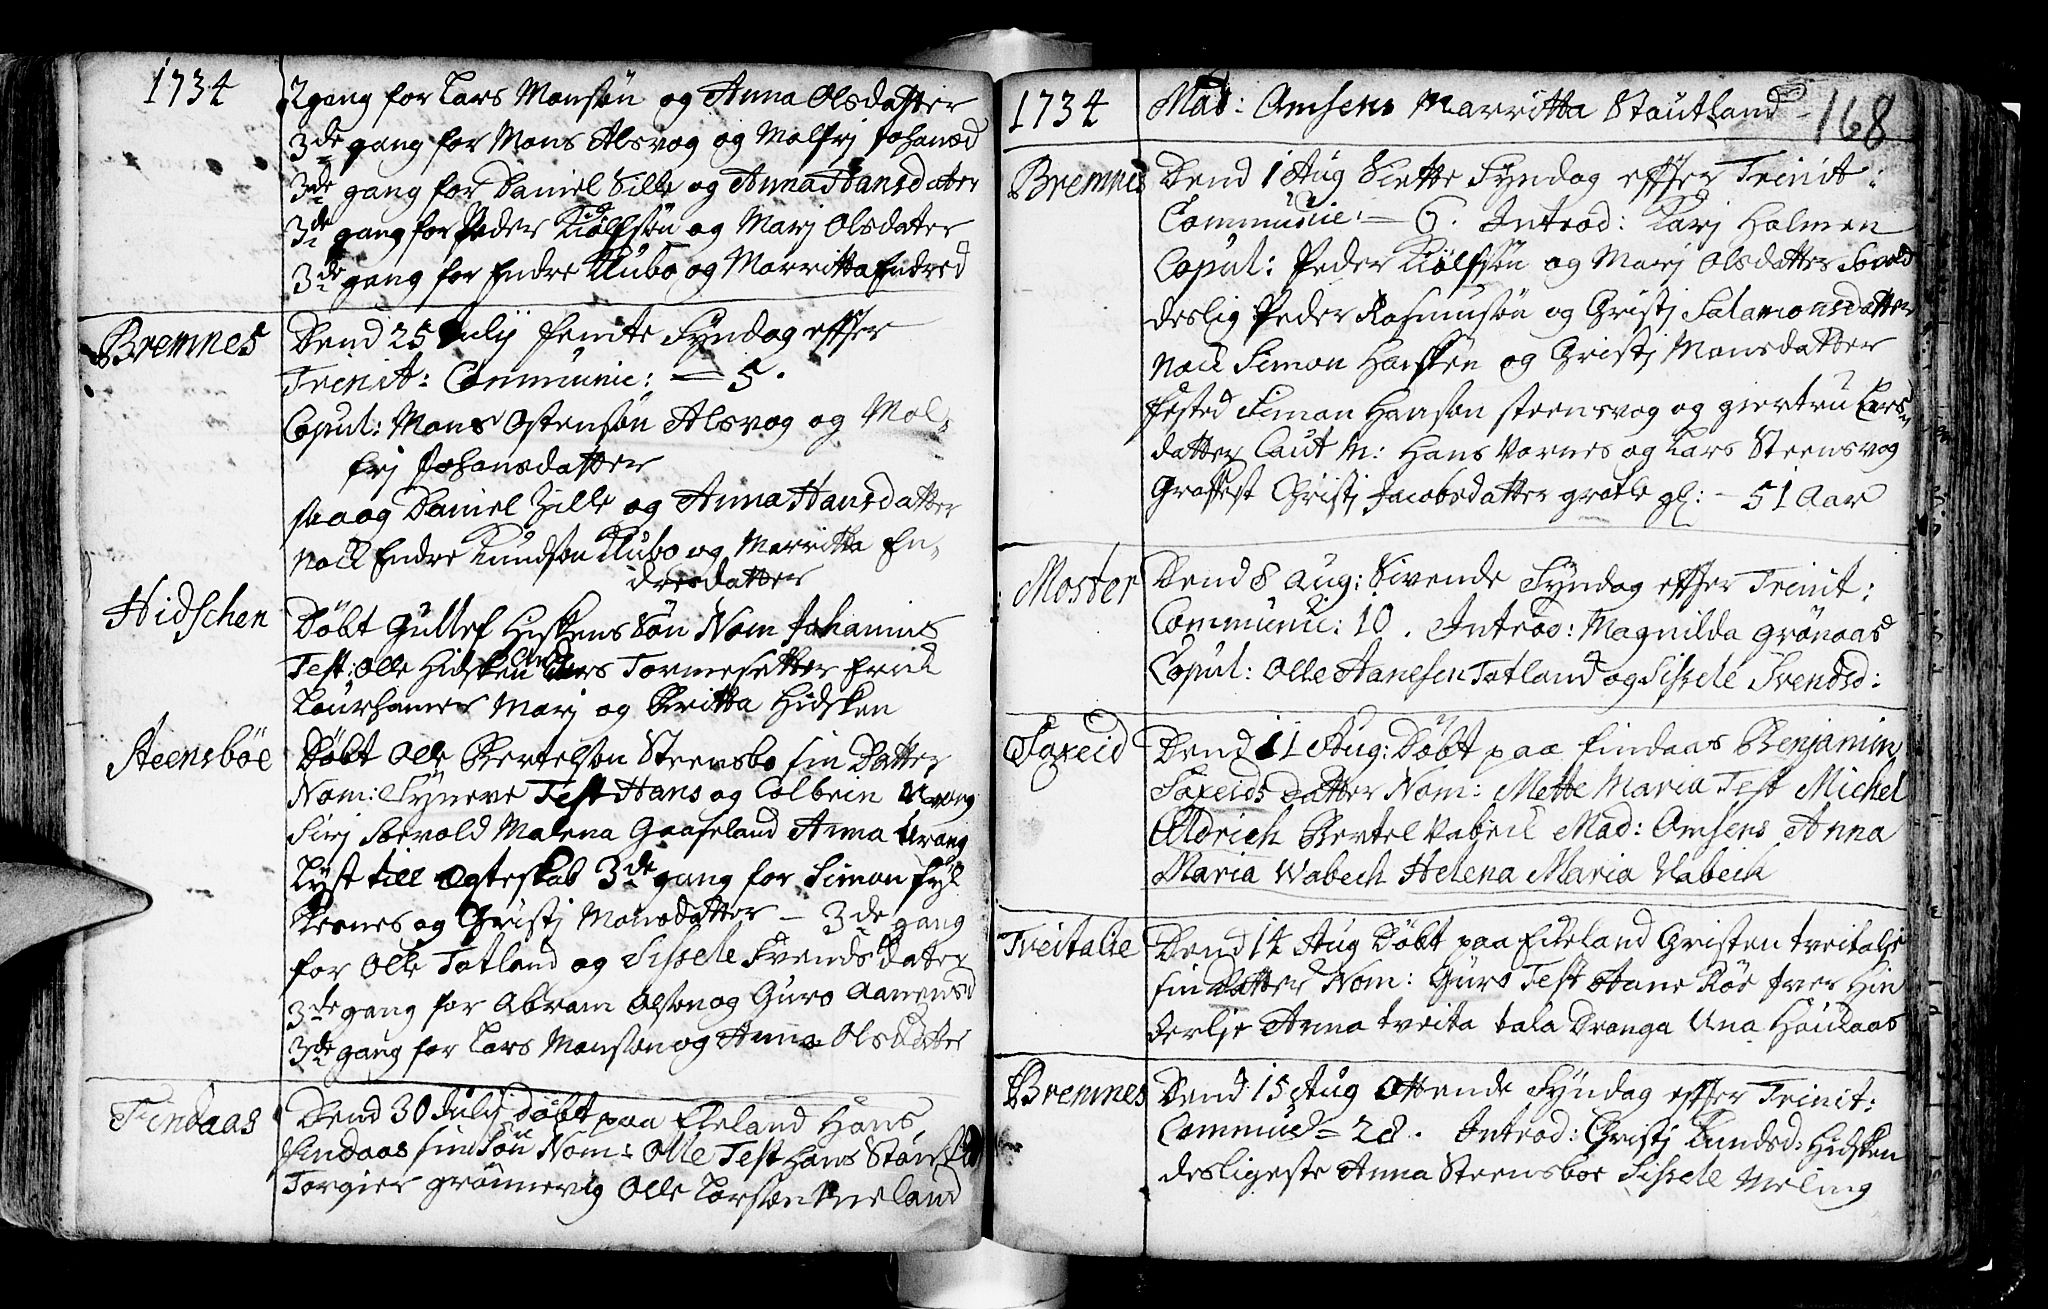 1734
2 gang for Lars Monsøn og Anna Olsdatter
3de gang for Mons Alsvog og Malfrj Johansd
3de gang for Daniel Sille og Anna Hansdatter
3de gang for Peder Kiølfsøn og Marj Olsdatter
3de gang for Endre Klubo og Marritta Endresd
Bremnes
Dend 25 Julij femte Syndag effter
Trinit: Communic: = 5.
Copul: Mons Ostensøn Alsvog og Mal-
frj Johansdatter
saaog Daniel Zille og Anna Hansdatter
nock Endre Knudsøn Klubo og Marritta En-
dresdatter
Hidschen
Døbt Gullef Hiskens Søn Nom Johannis
Test: Olle Hidsken Tormesetter Erick
Marj og Britta Hidsken
Steensbøe
Døbt Olle Bertelsøn Steensbo sin Datter
Nom: Syneve Test Hans og Colbein Urang
Sirj Sævold Malena Gaaseland Anna Urang
Lyst till Egteskab 3de gang for Simon Fyl
Besnes og Christj Monsdatter – 3de gang
for Olle Totland og Sissele Svends Datter
3de gang for Abram Olson og Guro Aanensd
3de gang for Lars Monson og Anna Olsdatter
Findaas
Dend 30 Julij døbt paa Eckeland Hans
Findaas sin Søn Nom: Olle Test Hans
Torgier grønnevig Olle Larson
1734
Mad: Omsens Marritta Stautland
168
Bremnes
Dend 1 Aug Siette Syndag effter Trinit:
Communic: = 6. Introd: Karj Holmen
Copul: Peder Kiølfsøn og Marj Olsdatter
deslig Peder Rasmusøn og Christj Salamonsdatter
nock Simon Hansken og Christj Monsdatter
fested Simon Hanson Steensvog og giertru Lars-
datter Caut M: Hans Vornes og Lars Steensvog
Graffest Christj Jacobsdatter grotle gl: – 51 Aar
Moster
Dend 8 Aug: Sivende Syndag effter Trinit:
Communic: 10. Introd: Magnilda Grønaas
Copul: Olle Hanesen Totland og Sissele Svendsd:
Saxeid
Dend 11 Aug: Døbt paa Findaas Benjamin
Saxeids Datter Nom: Mette Maria Test Michel
Eldrich Bertel Vabeck Mad: Omsens Anna
Maria Wabech Helena Maria Vabeck
Tveitalie
Dend 14 Aug Døbt paa Eckeland Christen tveitalje
sin Datter Nom: Guro Test Aane Røe Iver Hin
derlje Anna tveita tala Dranga Una Høickaas
Bremnes
Dend 15 Aug Ottende Syndag effter Trinit:
Communic = 28. Introd: Christj Knudsd: Hidsken
desligeste Anna Steensbøe Sissele Meling